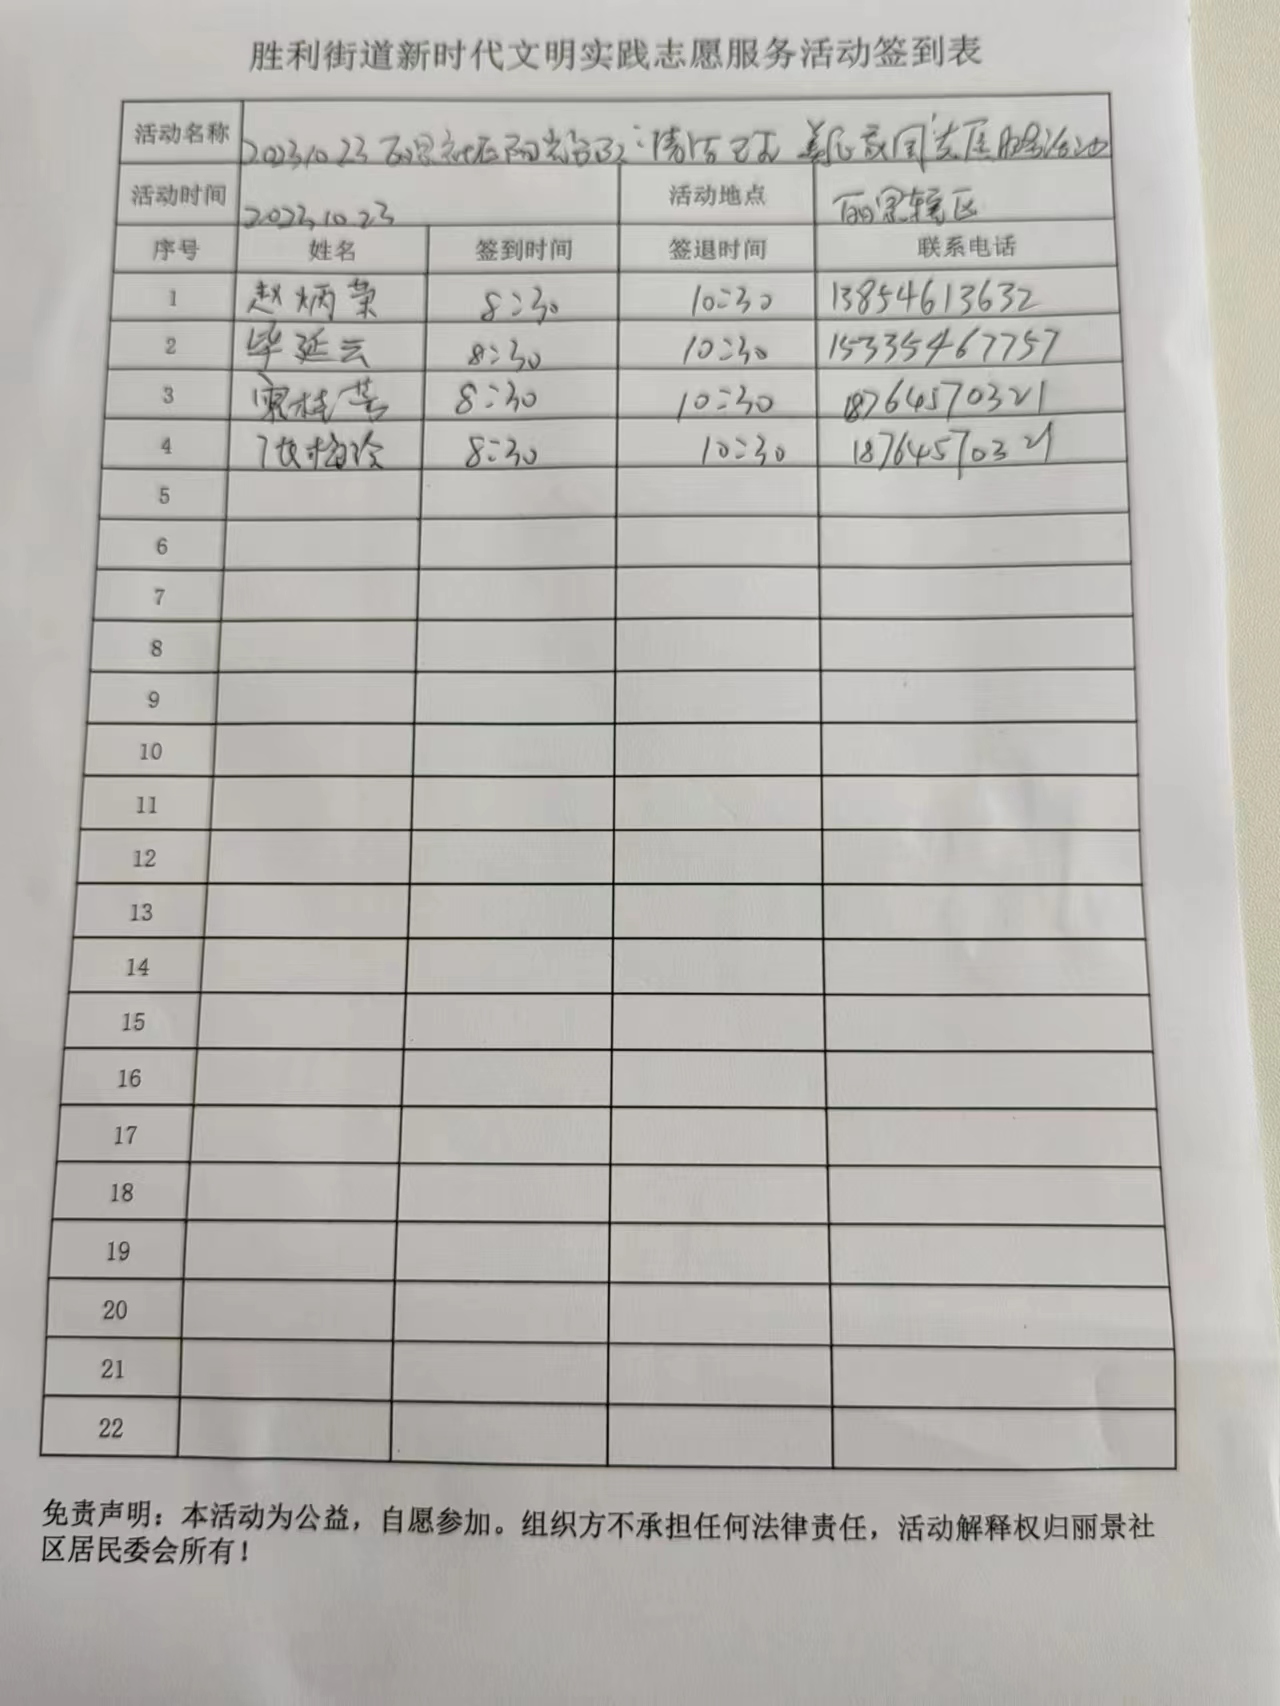 胜利街道新时代文明实践志愿服务活动签到表
活动名称 2023.10.23丽景社区阳光 清洁 美 家园志愿服务活动
活动时间 2023.10.23 活动地点 丽景辖区
序号 姓名 签到时间 签退时间 联系电话
1 赵炳荣 8:30 10:30 13854613632
2 毕延云 8:30 10:30 15335467757
3 桂 8:30 10:30 18764570321
4 8:30 10:30 18764570321
5
6
7
8
9
10
11
12
13
14
15
16
17
18
19
20
21
22
免责声明：本活动为公益，自愿参加。组织方不承担任何法律责任，活动解释权归丽景社
区居民委会所有！